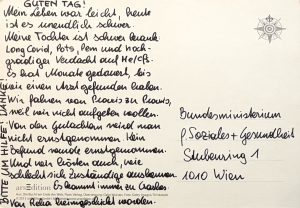 GUTEN TAG!
Mein Leben war leicht, heute
ist es unendlich schwer.
Meine Tochter ist schwer krank:
Long Covid, Pots, Pem und hoch-
gradiger Verdacht auf Me/Cfs.
Es hat Monate gedauert, bis
wir einen Arzt gefunden haben.
Wir fahren von Praxis zu Praxis,
weil wir nicht aufgeben wollen.
Von den Gutachtern wird man
nicht ernstgenommen. Kein
Befund wurde ernstgenommen.
Und von Ärzten auch, weil
schlecht sich Zuständige auskennen.
Es kommt immer zu Crashes.
Von Reha heimgeschickt worden.
BITTE UM HILFE! DANKE!
Bundesministerium
f. Soziales + Gesundheit
Stubenring 1
1010 Wien